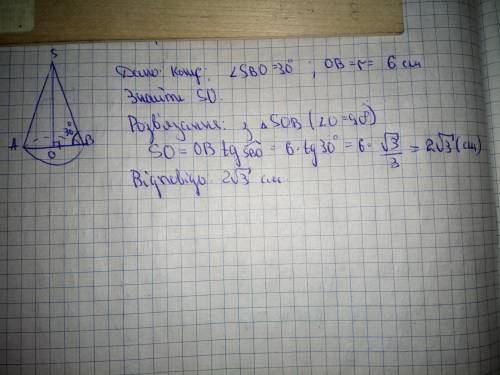 S
Дано: Конус; ∠SBO=30°; OB=r= 6 см
Знайти SO.
Розв'язання: з △SOB (∠O=90°)
SO=OB tg SBO = 6·tg30° = 6·√3/3 = 2√3 (см)
Відповідь 2√3 см
A 30° B
O